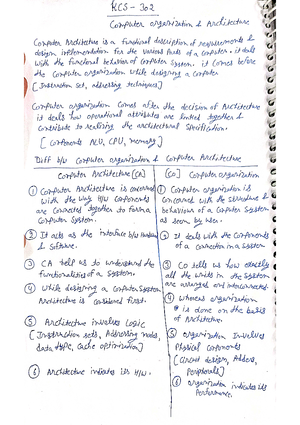 KCS - 302
Computer organization & Architecture
Computer Architecture is a functional description of requirements &
design implementation for the various parts of a computer. it deals
with the functional behaviour of computer system. it comes before
the computer organization while designing a computer
[Instruction set, addressing techniques]
Computer organization comes after the decision of Architecture
it deals how operational attributes are linked together &
contribute to realizing the architectural specification.
[Components ALU, CPU, memory]
Diff b/w Computer organization & Computer Architecture
Computer Architecture [CA]
① Computer Architecture is concerned
with the way H/W components
are connected together to form a
computer system.
② It acts as the interface b/w Hardware
& Software.
③ CA help us to understand the
functionalities of a system.
④ While designing a computer system
Architecture is considered first.
⑤ Architecture involves Logic
[Instruction sets, Addressing modes,
data types, Cache optimization]
⑥ Architecture indicates its H/W.
[CO] Computer Organization
① Computer organization is
concerned with the structure &
behaviour of a computer system
as seen by user.
② It deals with the components
of a connection in a system
③ CO tells us how exactly
all the units in the system
are arranged and interconnected.
④ whereas organization
is done on the basis
of Architecture.
⑤ organization Involves
Physical components
[Circuit design, Adders,
Peripherals]
⑥ organization indicates its
Performance.